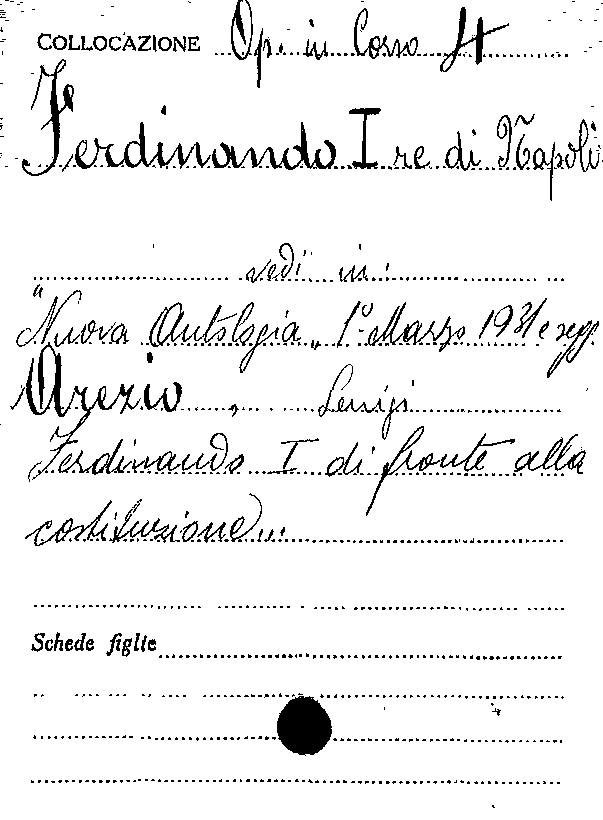 COLLOCAZIONE Op. in Corso 4
Ferdinando I re di Napoli
vedi in:
"Nuova Antologia" 1° Marzo 1931 e segg.
Arezio, Luigi
Ferdinando I di fronte alla
costituzione...
Schede figlie